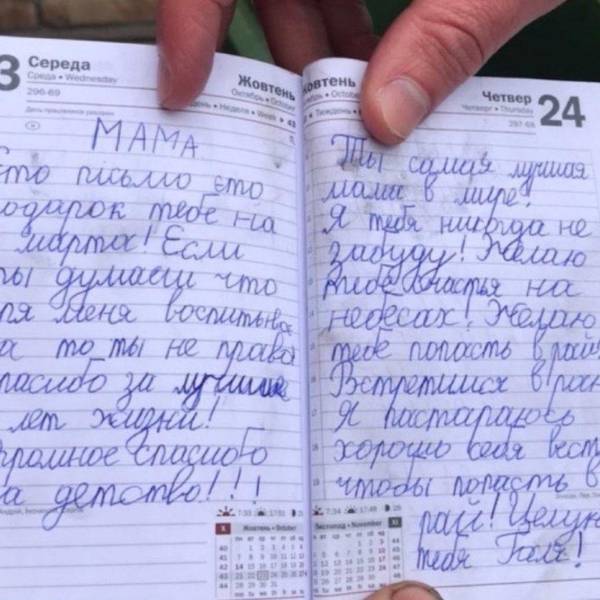 3 Середа
Среда • Wednesday
296-69
Жовтень
Октябрь • October
Неделя • Week ▸ 43
МАМА
Єто письмо єто
подарок тебе на
марта! Если
ты думаеш что
ря меня
а то ты не права
спасибо за лучшие
лет жизни!
громное спасибо
а детство!!!
7:33 17:51
X Жовтень • October
овтень
Четвер 24
Четверг • Thursday
297-68
Ты самая лучшая
мама в мире!
Я тебя никогда не
забуду! Желаю
тебе счастья на
небесах! Желаю
тебе попасть в рай!
Встретимся в раю
Я постараюсь
хорошо себя вести
чтобы попасть в
рай! Целую
тебя Галя!
7:34 17:49
Листопад • November XI